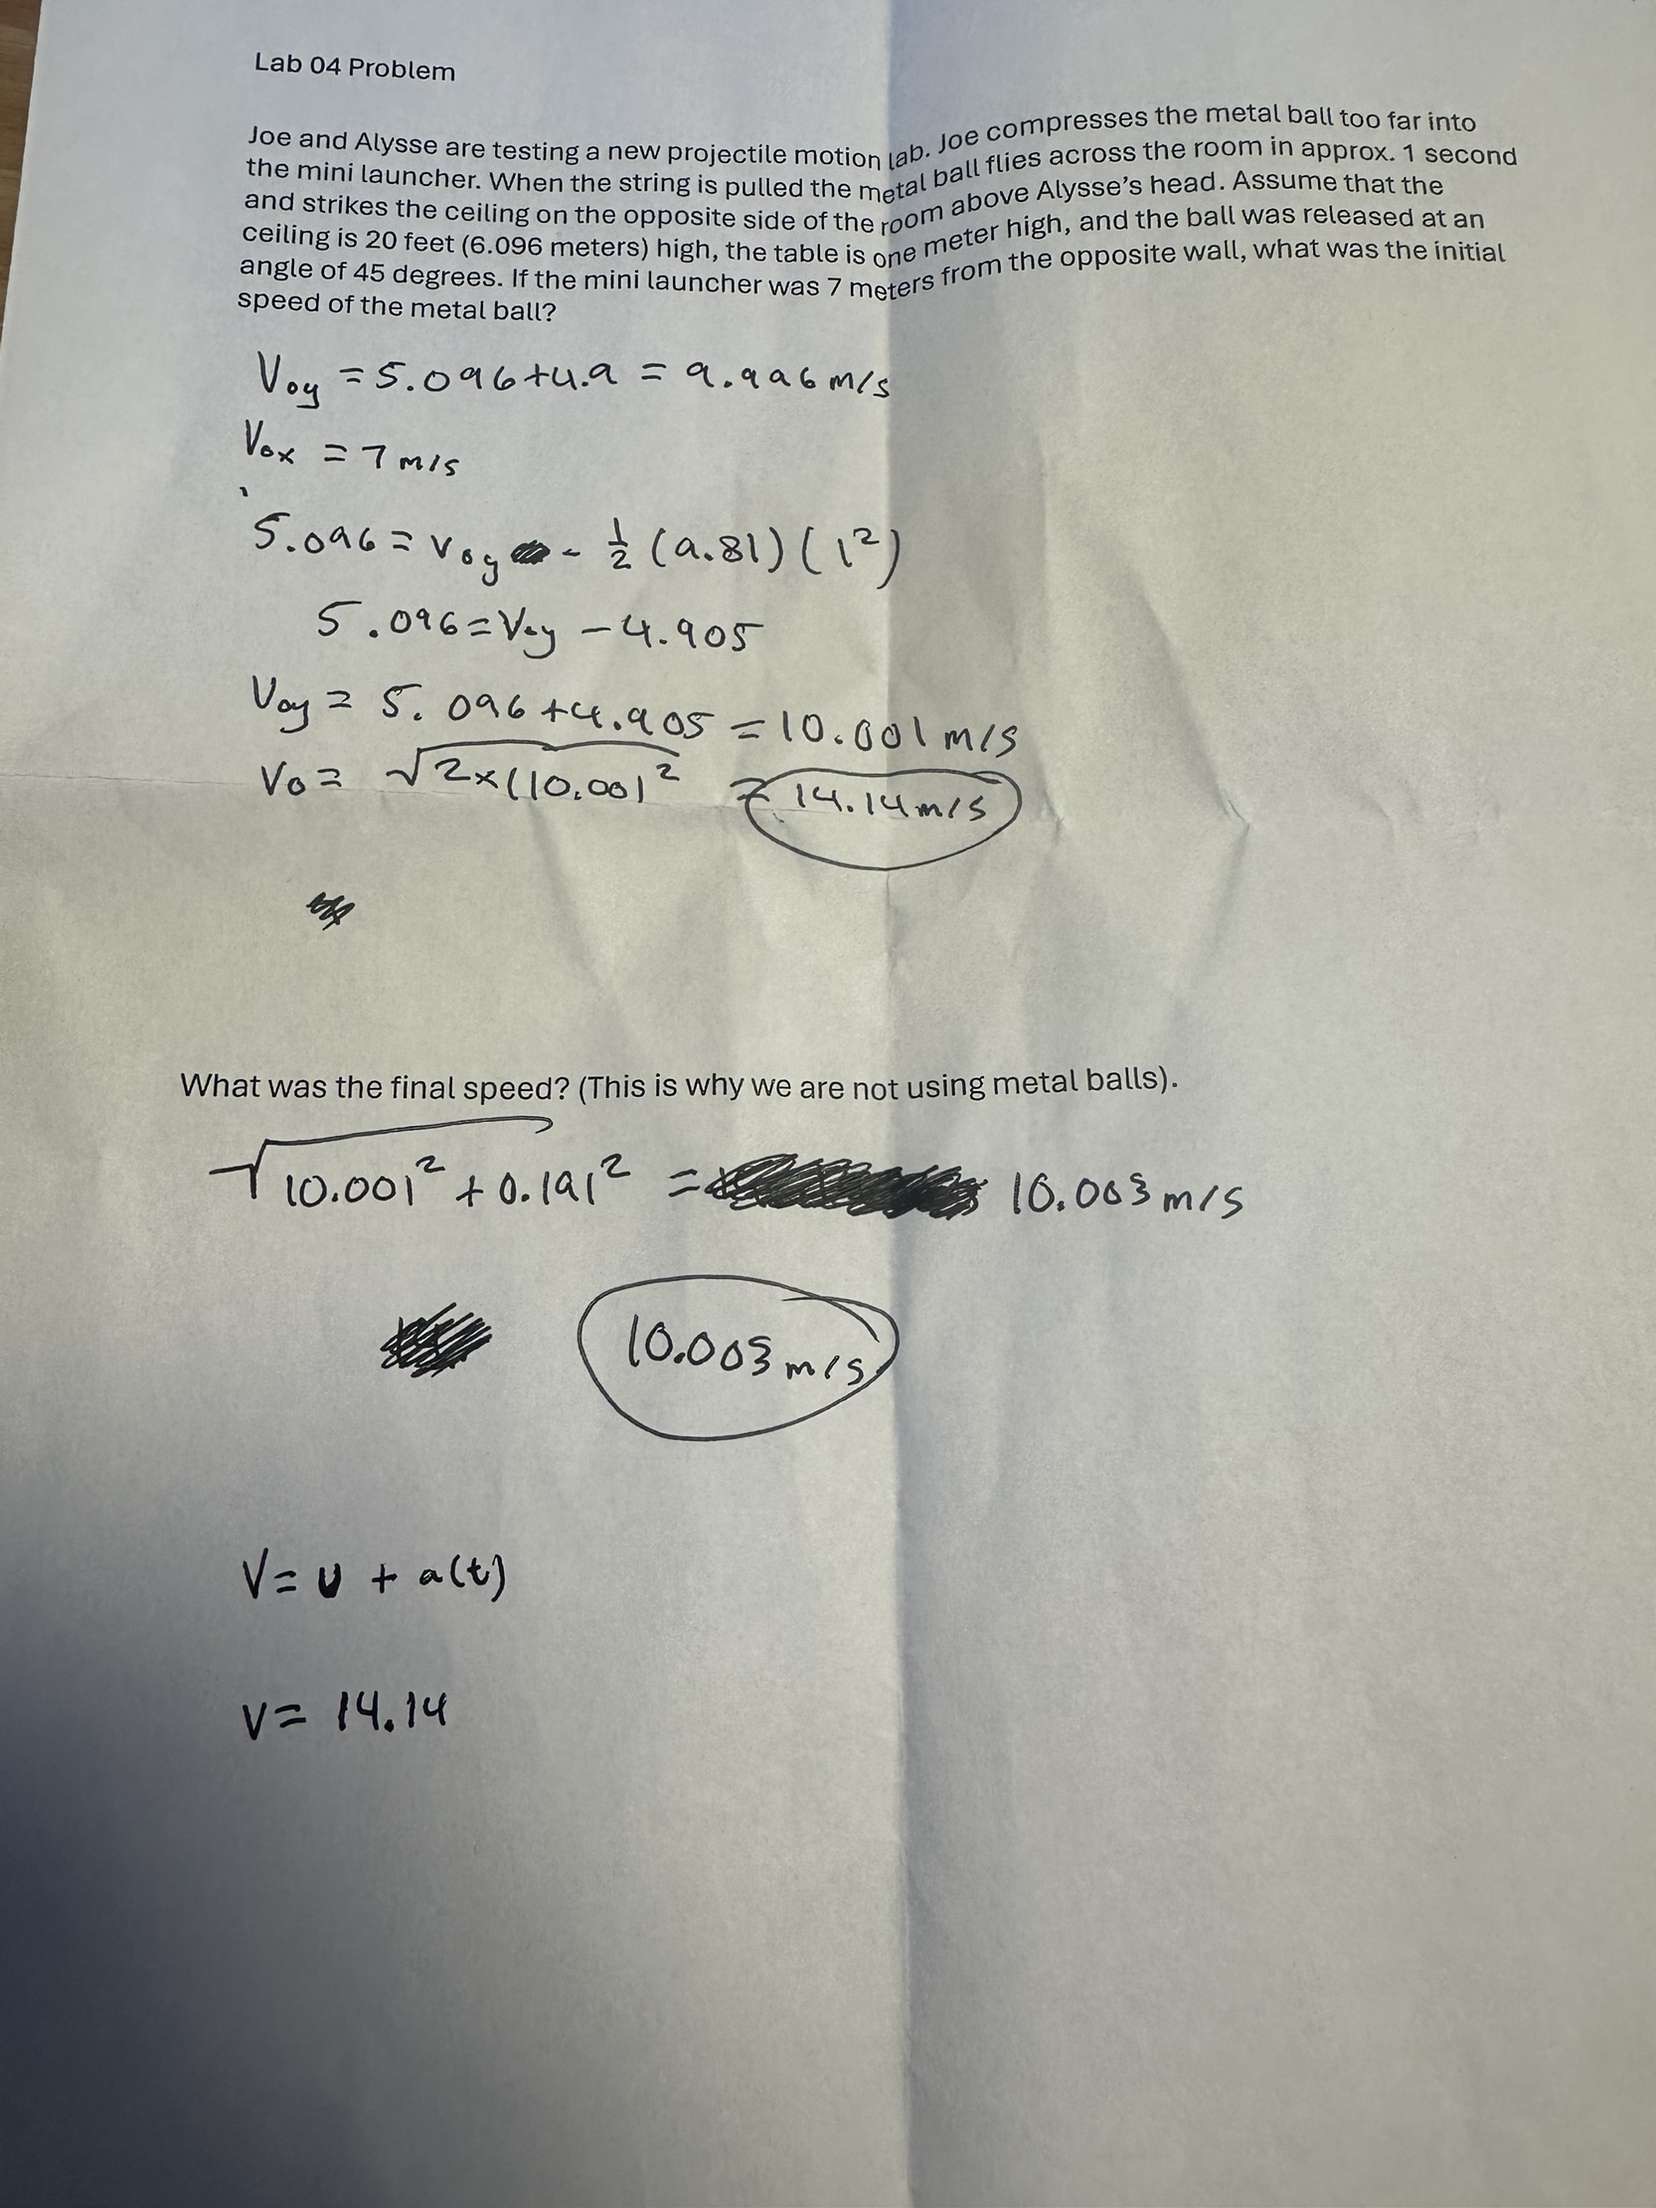 Lab 04 Problem
Joe and Alysse are testing a new projectile motion lab. Joe compresses the metal ball too far into
the mini launcher. When the string is pulled the metal ball flies across the room in approx. 1 second
and strikes the ceiling on the opposite side of the room above Alysse's head. Assume that the
ceiling is 20 feet (6.096 meters) high, the table is one meter high, and the ball was released at an
angle of 45 degrees. If the mini launcher was 7 meters from the opposite wall, what was the initial
speed of the metal ball?
Voy = 5.096+4.9 = 9.996 m/s
Vox = 7 m/s
5.096 = Voy - 1/2 (9.81) (1²)
5.096 = Voy - 4.905
Voy = 5.096 + 4.905 = 10.001 m/s
Vo = √2×(10.001² = 14.14 m/s
What was the final speed? (This is why we are not using metal balls).
√10.001² + 0.191² = 10.003 m/s
10.003 m/s
V = u + a(t)
V = 14.14